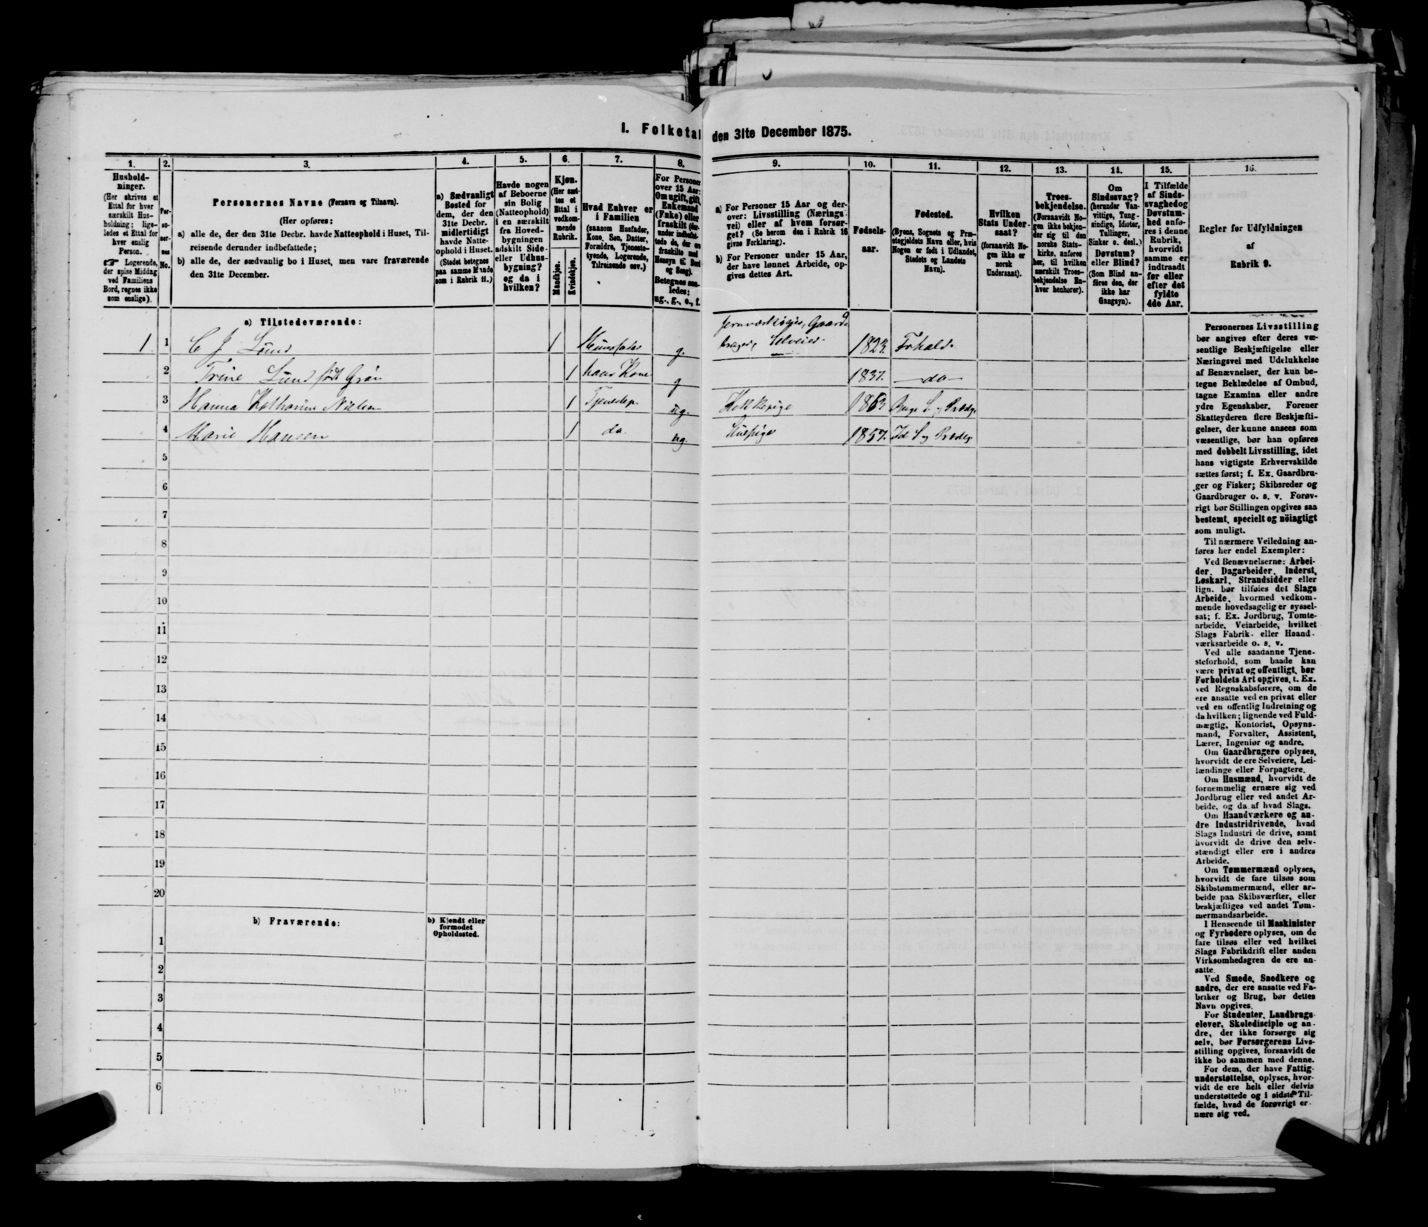 I. Folketal den 31te December 1875.
1.
Hushold-
ninger.
(Her skrives et
Ettal for hver
særskilt Hus-
holdning; lige-
ledes et Ettal for
hver enslig
Person.
Logerende,
der spise Middag
ved Familiens
Bord, regnes ikke
som enslige).
2.
Per-
so-
ner-
nes
No.
3.
Personernes Navne (Fornavn og Tilnavn).
(Her opføres:
a) alle de, der den 31te Decbr. havde Natteophold i Huset, Til-
reisende derunder indbefattede;
b) alle de, der sædvanlig bo i Huset, men vare fraværende
den 31te December.
4.
a) Sædvanligt
Bosted for
dem, der den
31te Decbr.
midlertidigt
havde Natte-
ophold i Huset.
(Stedet betegnes
paa samme Maade
som i Rubrik 11.)
5.
Havde nogen
af Beboerne
sin Bolig
(Natteophold)
i en særskilt
fra Hoved-
bygningen
adskilt Side-
eller Udhus-
bygning?
og da i
hvilken?
6.
Kjøn.
(Her sæt-
tes et
Ettal i
vedkom-
mende
Rubrik.
Mandkjøn.
Kvindekjøn.
7.
Hvad Enhver er
i Familien
(saasom Husfader,
Kone, Søn, Datter,
Forældre, Tjeneste-
tyende, Logerende,
Tilreisende osv.)
8.
For Personer
over 15 Aar:
Om ugift, gift,
Enkemand
(Enke) eller
fraskilt
Betegnes saa-
ledes:
ug., g., e., f.
9.
a) For Personer 15 Aar og der-
over: Livsstilling (Nærings-
vei) eller af hvem forsør-
get? (Se herom den i Rubrik 16
givne Forklaring).
b) For Personer under 15 Aar,
der have lønnet Arbeide, op-
gives dettes Art.
10.
Fødsels-
aar.
11.
Fødested.
(Byens, Sognets og Præ-
stegjeldets Navn eller, hvis
Nogen er født i Udlandet,
Stedets og Landets
Navn).
12.
Hvilken
Stats Under-
saat?
(forsaavidt No-
gen ikke er
norsk
Undersaat).
13.
Troes-
bekjendelse.
(Forsaavidt No-
gen ikke bekjen-
der sig til den
norske Stats-
kirke, anføres
her, til hvilken
særskilt Troes-
bekjendelse En-
hver henhører).
14.
Om
Sindssvag?
(herunder Van-
vittige, Tung-
sindige, Idioter,
Tullinger,
Sinker o. desl.)
Døvstum?
eller Blind?
(Som Blind an-
føres den, der
ikke har
Gangsyn).
15.
I Tilfælde
af Sinds-
svaghed og
Døvstum-
hed anfø-
res i denne
Rubrik,
hvorvidt
samme er
indtraadt
før eller
efter det
fyldte
4de Aar.
16.
Regler før Udfyldningen
af
Rubrik 9.
a) Tilstedeværende:
1 1 C J Lund 1 Huusfader g. Gaard- bruger, Selveier 1823.
2 Trine Lund født Grøn 1 hans Kone g 1837. do
3 Hanna Katharine Nielsen 1 ug. Kokkepige
4 Marie Hansen 1 do. ug. Huspige 1857.
5
6
7
8
9
10
11
12
13
14
15
16
17
18
19
20
b) Fraværende:
b) Kjendt eller
formodet
Opholdssted.
1
2
3
4
5
6
Personernes Livsstilling
bør angives efter deres væ-
sentlige Beskjæftigelse eller
Næringsvei med Udelukkelse
af Benævnelser, der kun be-
tegne Beklædelse af Ombud,
tagne Examina eller andre
ydre Egenskaber. Forener
Skatteyderen flere Beskjæfti-
gelser, der kunne ansees som
væsentlige, bør han opføres
med dobbelt Livsstilling, idet
hans vigtigste Erhvervskilde
sættes først; f. Ex. Gaardbru-
ger og Fisker; Skibsreder og
Gaardbruger o. s. v. Forøv-
rigt bør Stillingen opgives saa
bestemt, specielt og nøiagtigt
som muligt.
Til nærmere Veiledning an-
føres her endel Exempler:
Ved Benævnelserne: Arbei-
der, Dagarbeider, Inderst,
Løskarl, Strandsidder eller
lign. bør tilføies det Slags
Arbeide, hvormed vedkom-
mende hovedsagelig er syssel-
sat; f. Ex. Jordbrug, Tomte-
arbeide, Veiarbeide, hvilket
Slags Fabrik- eller Haand-
værksarbeide o. s. v.
Ved alle saadanne Tjene-
steforhold, som baade kan
være privat og offentligt, bør
Forholdets Art opgives, t. Ex.
ved Regnskabsførere, om de
ere ansatte ved en privat eller
ved en offentlig Indretning og
da hvilken; lignende ved Fuld-
mægtig, Kontorist, Opsyns-
mand, Forvalter, Assistent,
Lærer, Ingeniør og andre.
Om Gaardbrugere oplyses,
hvorvidt de ere Selveiere, Lei-
lændinge eller Forpagtere.
Om Husmænd, hvorvidt de
fornemmelig ernære sig ved
Jordbrug eller ved andet Ar-
beide, og da af hvad Slags.
Om Haandværkere og an-
dre Industridrivende, hvad
Slags Industri de drive, samt
hvorvidt de drive den selv-
stændigt eller ere i andres
Arbeide.
Om Tømmermænd oplyses,
hvorvidt de fare tilsøs som
Skibstømmermænd, eller ar-
beide paa Skibsværfter, eller
beskjæftiges ved andet Tøm-
mermandsarbeide.
I Henseende til Maskinister
og Fyrbødere oplyses, om de
fare tilsøs eller ved hvilket
Slags Fabrikdrift eller anden
Virksomhedsgren de ere an-
satte.
Ved Smede, Snedkere og
andre, der ere ansatte ved Fa-
briker og Brug, bør dettes
Navn opgives.
For Studenter, Landbrugs-
elever, Skoledisciple og an-
dre, der ikke forsørge sig
selv, bør Forsørgerens Livs-
stilling opgives, forsaavidt de
ikke bo sammen med denne.
For dem, der have Fattig-
understøttelse, oplyses, hvor-
vidt de ere helt eller delvis
understøttede og i sidste Til-
fælde, hvad de forøvrigt er-
nære sig ved.